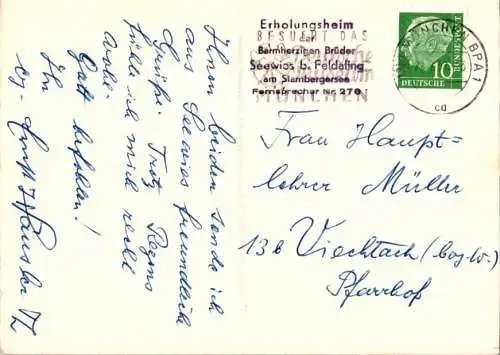 Ihnen beiden sende ich
aus Seewies freundlich
Grüße. Trotz Regens
fühle ich mich recht
wohl.
Gott befohlen!
Ihr
Erholungsheim
der
Barmherzigen Brüder
Seewies b. Feldafing
am Starnbergersee
Fernsprecher Nr. 270
BESUCHT DAS
MÜNCHEN
MÜNCHEN BPA 1
cd
DEUTSCHE
BUNDESPOST
10
Frau Haupt-
lehrer Müller
13b Viechtach (bay. W.)
Pfarrhof